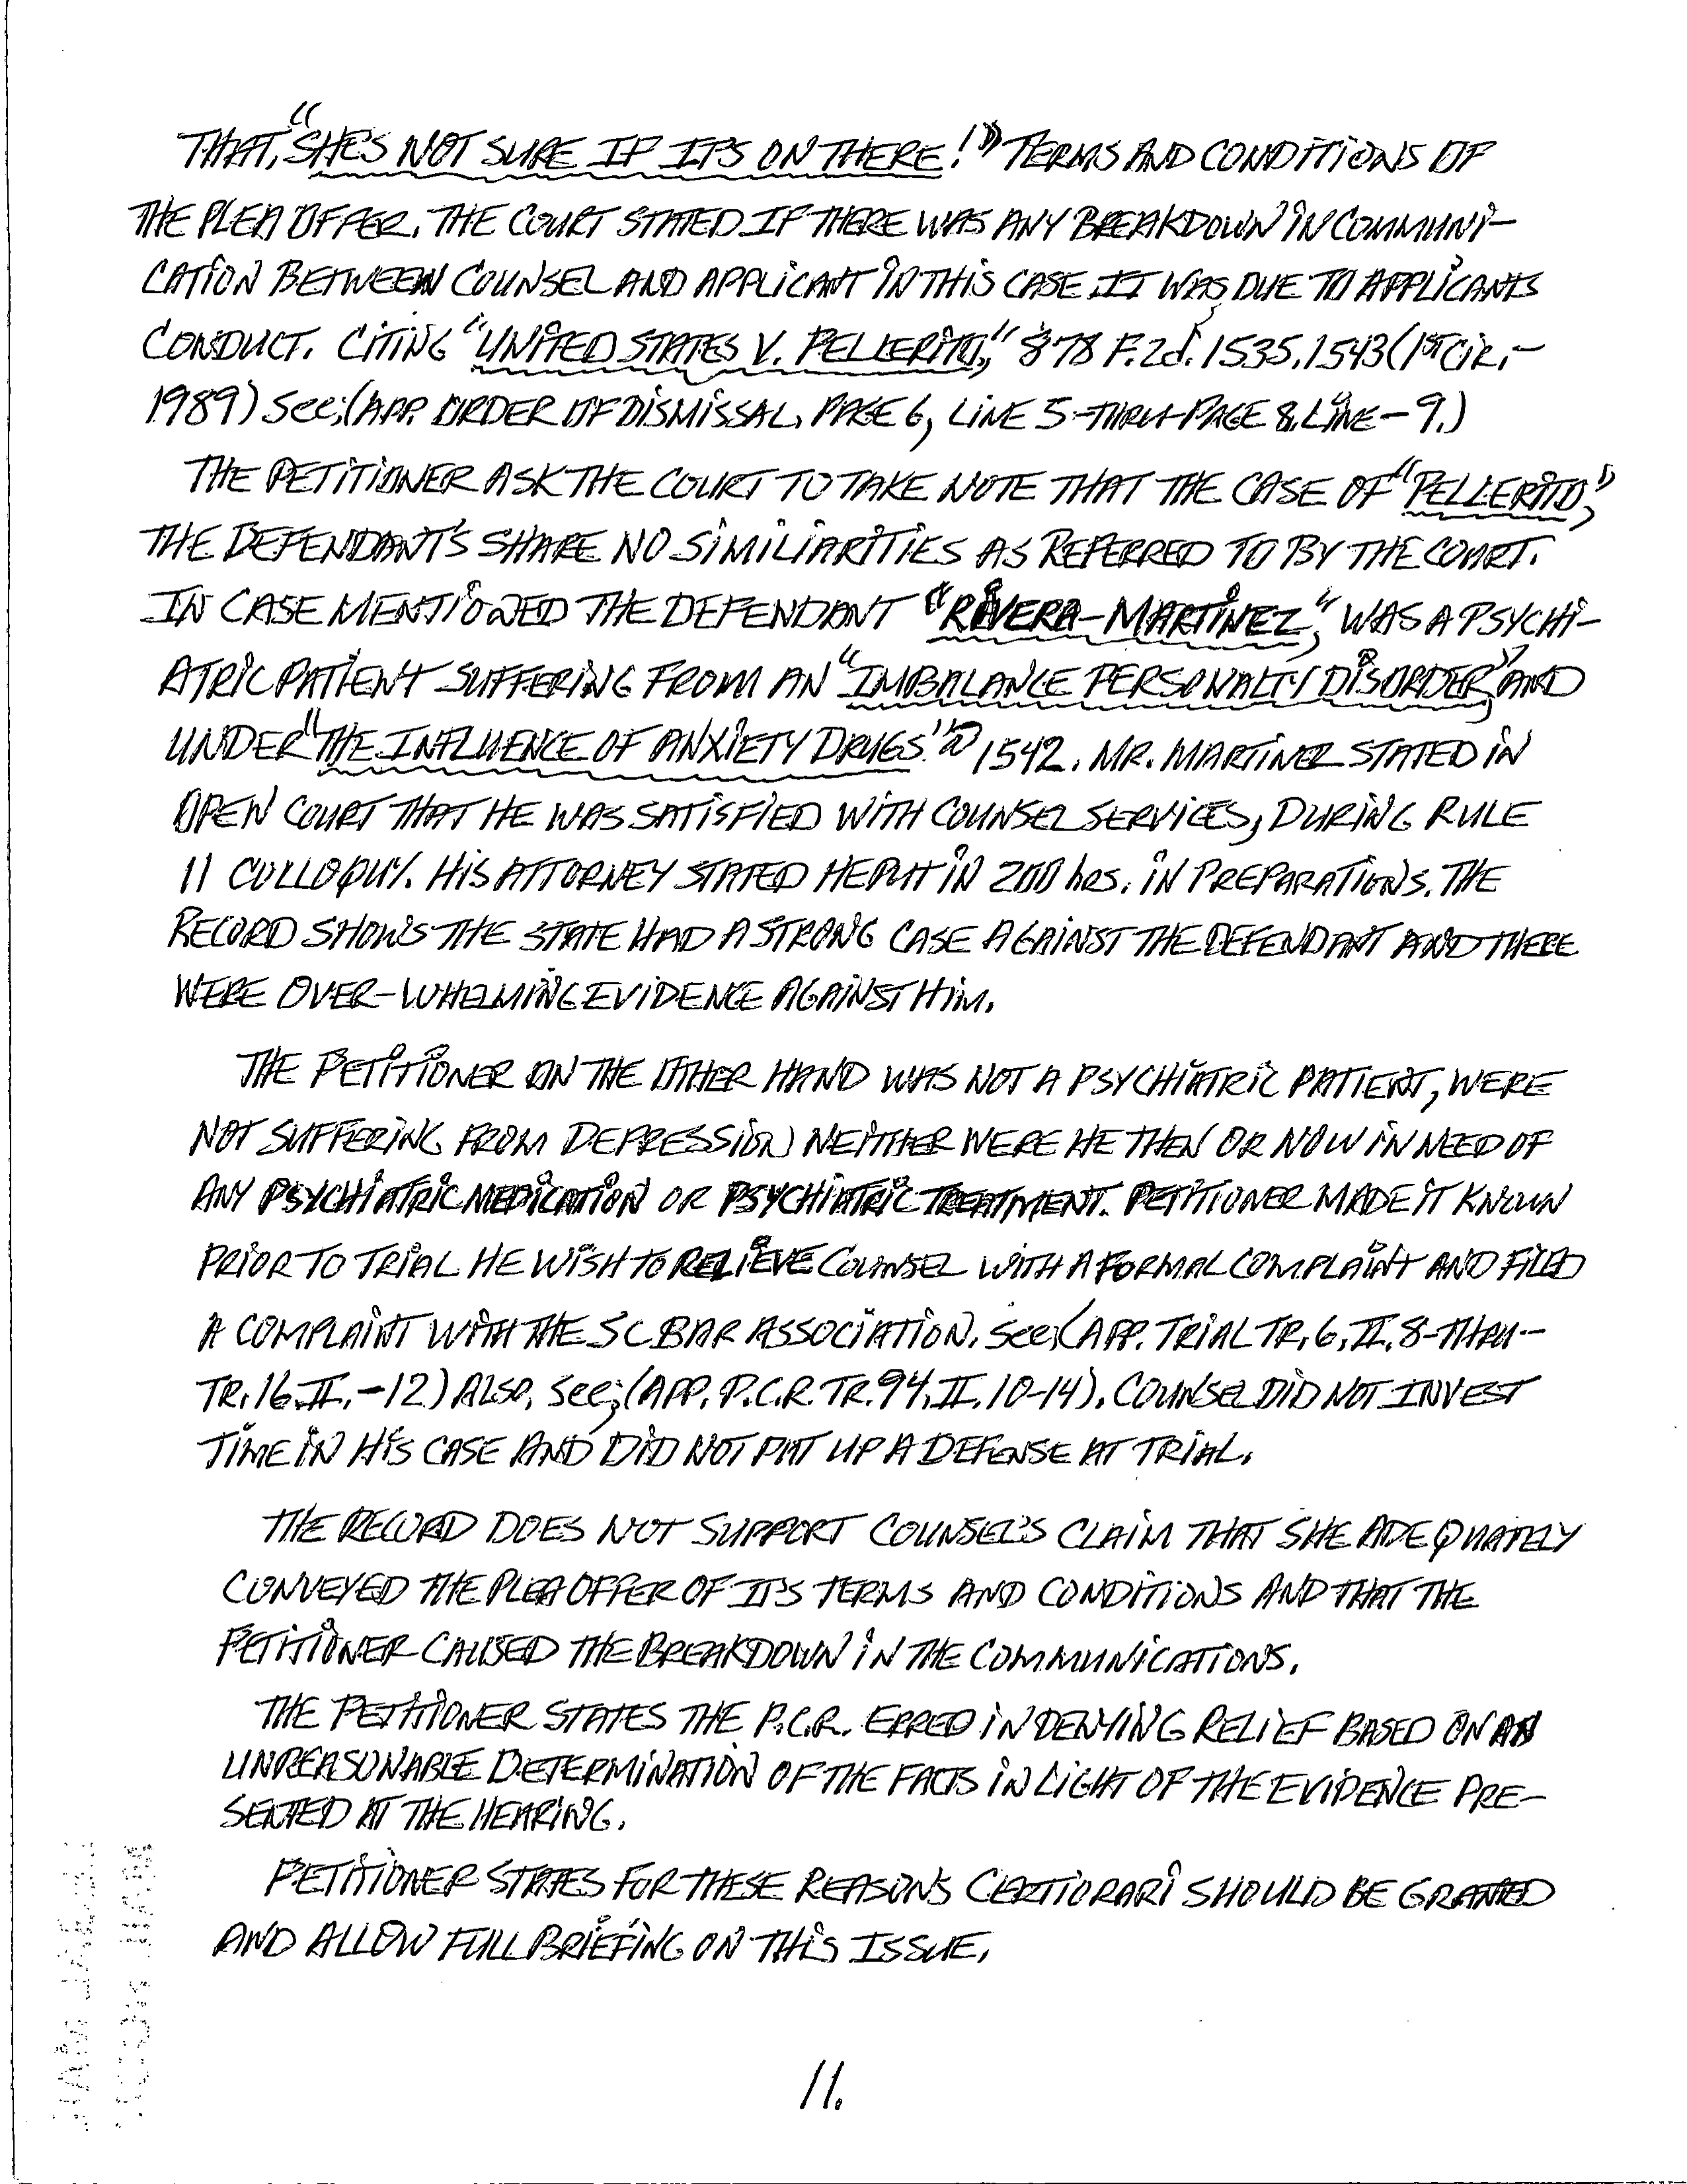 THAT, "SHE'S NOT SURE IF IT'S ON THERE!" TERMS AND CONDITIONS OF
THE PLEA OFFER. THE COURT STATED IF THERE WAS ANY BREAKDOWN IN COMMUNI-
CATION BETWEEN COUNSEL AND APPLICANT IN THIS CASE IT WAS DUE TO APPLICANTS
CONDUCT. CITING "UNITED STATES V. PELLERITO," 878 F.2d. 1535, 1543 (1ST CIR,-
1989) See;(APP. ORDER OF DISMISSAL, PAGE 6, LINE 5-THRU-PAGE 8, LINE-9.)
THE PETITIONER ASK THE COURT TO TAKE NOTE THAT THE CASE OF "PELLERITO,"
THE DEFENDANT'S SHARE NO SIMILIARITIES AS REFERRED TO BY THE COURT.
IN CASE MENTIONED THE DEFENDANT "RIVERA-MARTINEZ," WAS A PSYCHI-
ATRIC PATIENT SUFFERING FROM AN "IMBALANCE PERSONALTY DISORDER," AND
UNDER "THE INFLUENCE OF ANXIETY DRUGS." @ 1542. MR. MARTINEZ STATED IN
OPEN COURT THAT HE WAS SATISFIED WITH COUNSEL SERVICES, DURING RULE
11 COLLOQUY. HIS ATTORNEY STATED HE PUT IN 200 hrs. IN PREPARATIONS. THE
RECORD SHOWS THE STATE HAD A STRONG CASE AGAINST THE DEFENDANT AND THERE
WERE OVER-WHELMING EVIDENCE AGAINST HIM.
THE PETITIONER ON THE OTHER HAND WAS NOT A PSYCHIATRIC PATIENT, WERE
NOT SUFFERING FROM DEPRESSION NEITHER WERE HE THEN OR NOW IN NEED OF
ANY PSYCHIATRIC MEDICATION OR PSYCHIATRIC TREATMENT. PETITIONER MADE IT KNOWN
PRIOR TO TRIAL HE WISH TO RELIEVE COUNSEL WITH A FORMAL COMPLAINT AND FILED
A COMPLAINT WITH THE SC BAR ASSOCIATION. See;(APP. TRIAL TR, 6, II, 8-THRU--
TR. 16, II, -12) ALSO, See;(APP. P.C.R. TR. 94, II, 10-14). COUNSEL DID NOT INVEST
TIME IN HIS CASE AND DID NOT PUT UP A DEFENSE AT TRIAL.
THE RECORD DOES NOT SUPPORT COUNSEL'S CLAIM THAT SHE ADEQUATELY
CONVEYED THE PLEA OFFER OF IT'S TERMS AND CONDITIONS AND THAT THE
PETITIONER CAUSED THE BREAKDOWN IN THE COMMUNICATIONS.
THE PETITIONER STATES THE P.C.R. ERRED IN DENYING RELIEF BASED ON AN
UNREASONABLE DETERMINATION OF THE FACTS IN LIGHT OF THE EVIDENCE PRE-
SENTED AT THE HEARING.
PETITIONER STATES FOR THESE REASONS CERTIORARI SHOULD BE GRANTED
AND ALLOW FULL BRIEFING ON THIS ISSUE.
11.